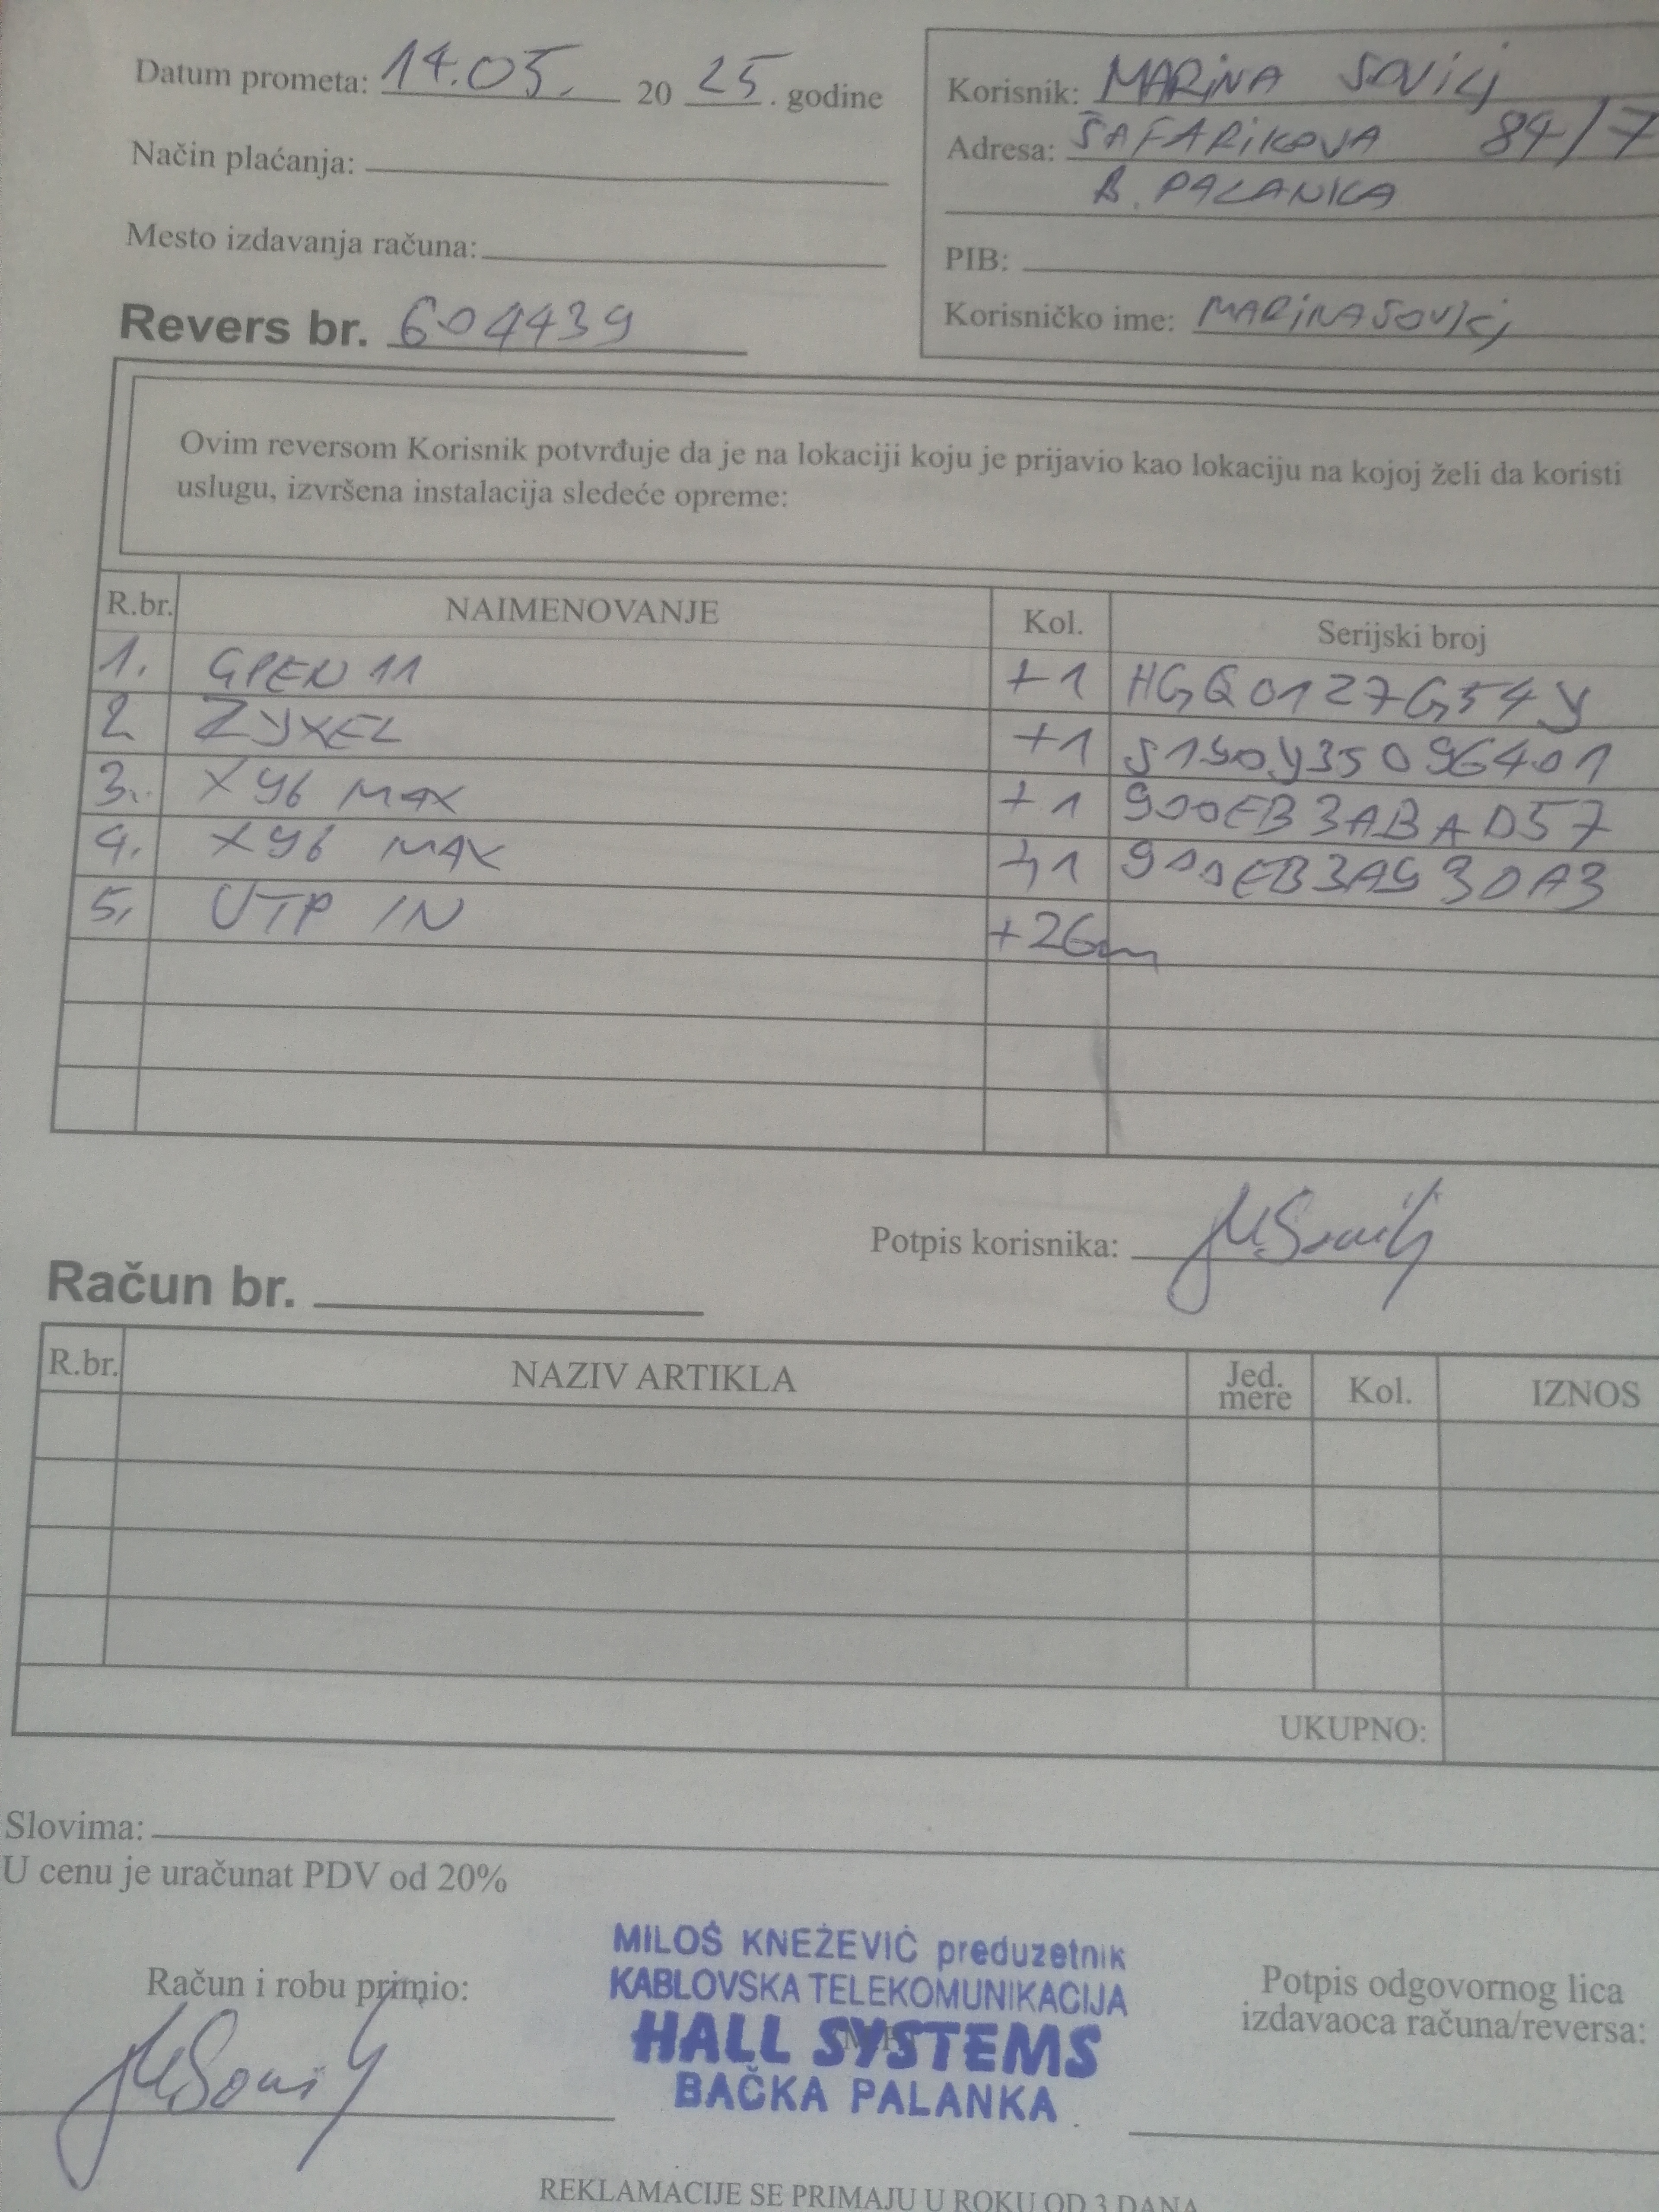 Datum prometa: 14.05. 20 25. godine
Korisnik: MARINA SOVILJ
Adresa: ŠAFARIKOVA 84/7
B. PALANKA
Način plaćanja:
Mesto izdavanja računa:
PIB:
Korisničko ime: MARINASOVILJ
Revers br. 604439
Ovim reversom Korisnik potvrđuje da je na lokaciji koju je prijavio kao lokaciju na kojoj želi da koristi
uslugu, izvršena instalacija sledeće opreme:
R.br. NAIMENOVANJE Kol. Serijski broj
1. GPEN 11 +1 HGQ0127G54Y
2. ZYXEL +1 S190Y35096401
3. X96 MAX +1 900EB3ABAD57
4. X96 MAX +1 900EB3A930A3
5. UTP IN +26m
Potpis korisnika: MSovilj
Račun br.
R.br. NAZIV ARTIKLA Jed. mere Kol. IZNOS
UKUPNO:
Slovima:
U cenu je uračunat PDV od 20%
MILOŠ KNEŽEVIĆ preduzetnik
KABLOVSKA TELEKOMUNIKACIJA
HALL SYSTEMS
BAČKA PALANKA
Račun i robu primio:
MSovilj
Potpis odgovornog lica
izdavaoca računa/reversa:
REKLAMACIJE SE PRIMAJU U ROKU OD 3 DANA